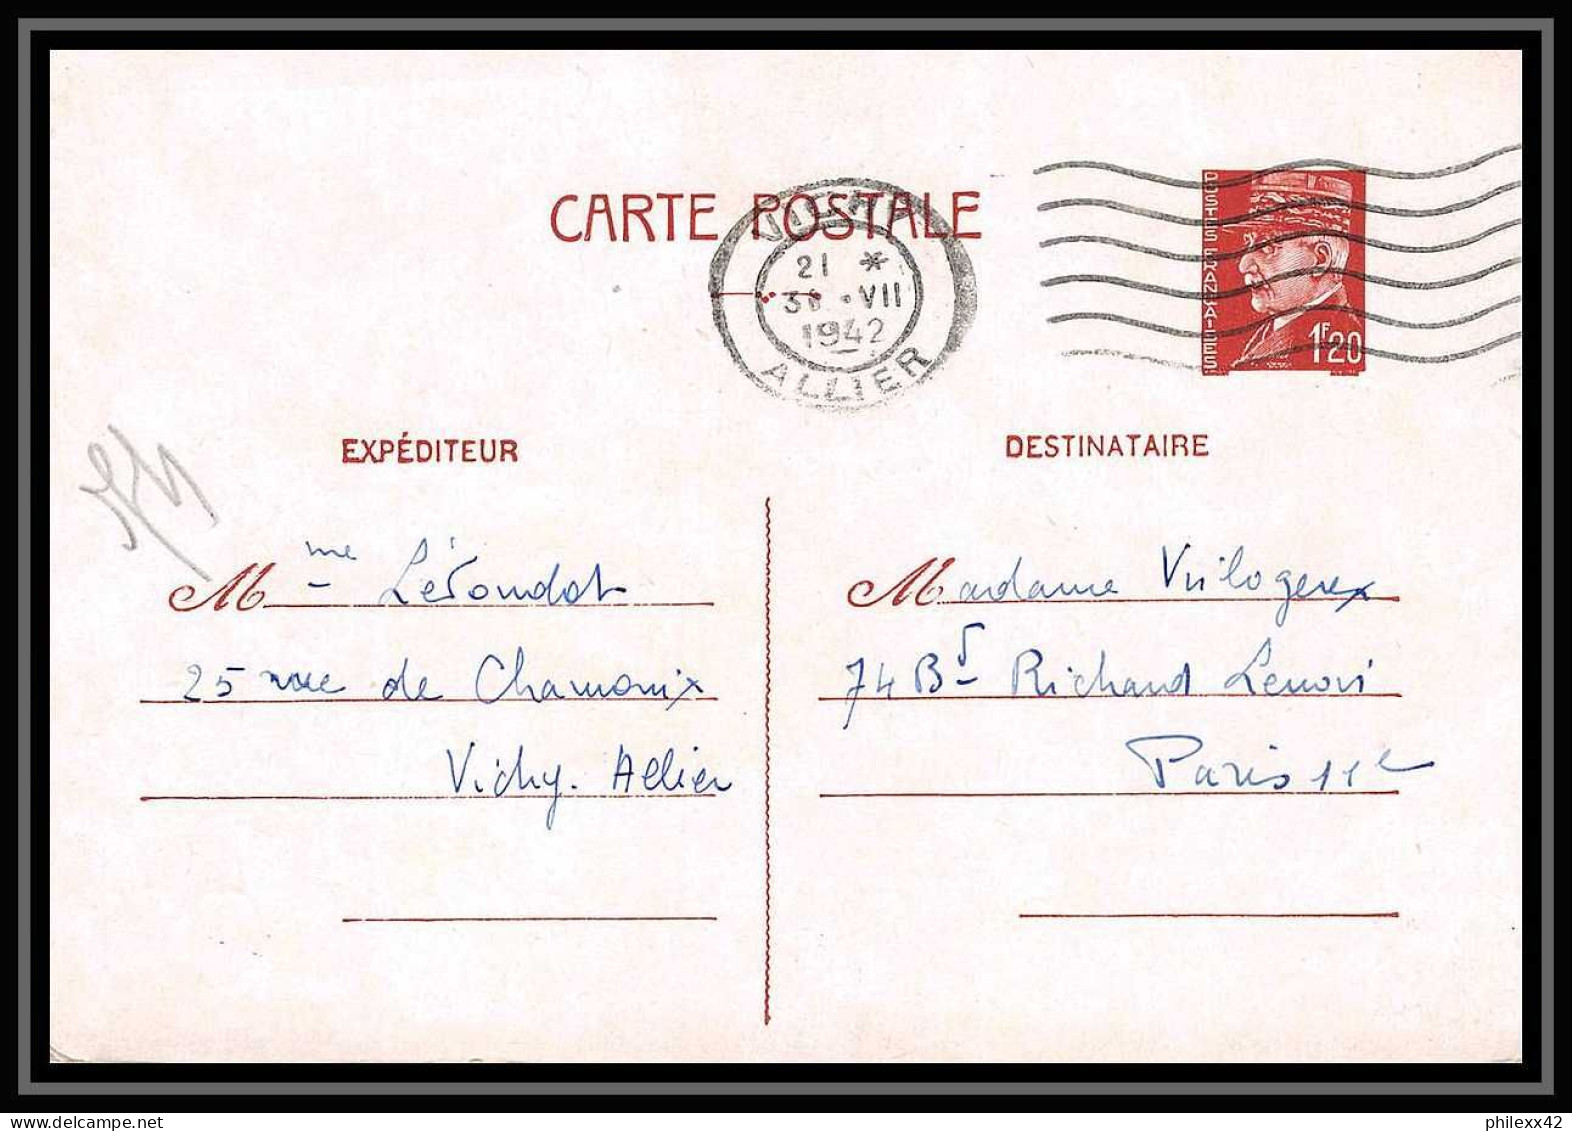 CARTE POSTALE
VICHY
21 *
VII
1942
ALLIER
POSTES FRANÇAISES
1F20
EXPÉDITEUR
Mme
25 rue de Chamonix
Vichy. Allier
DESTINATAIRE
Madame
74 Bd Richard Lenoir
Paris 11e
philexx42